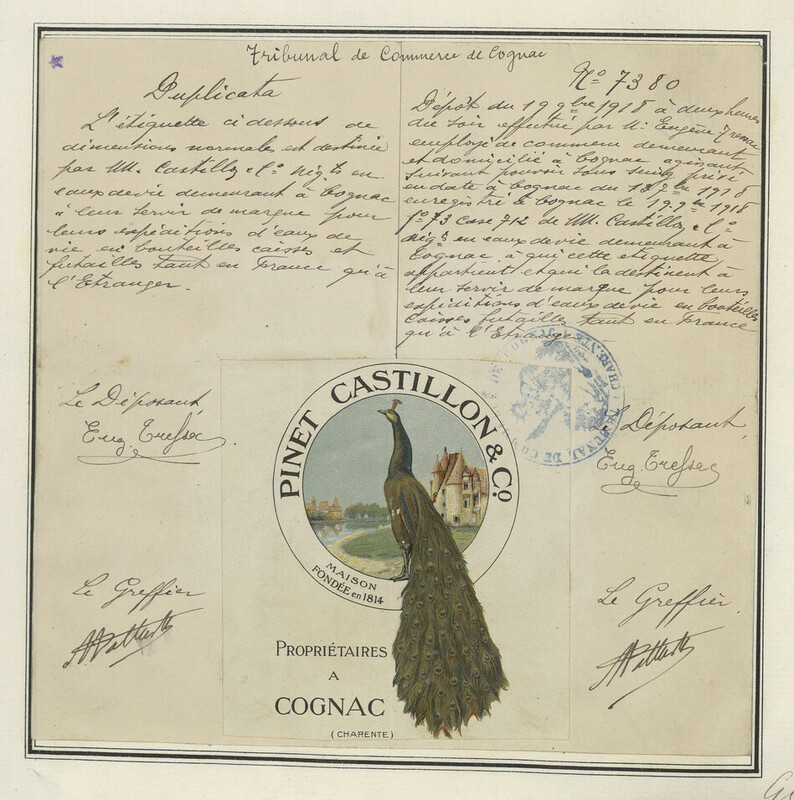 Tribunal de Commerce de Cognac
Duplicata
L'étiquette ci dessous de
dimensions normales est destinée
par MM. Castillon & Cº Négts en
eaux de vie demeurant à Cognac
à leur servir de marque pour
leurs expéditions d'eaux de
vie en bouteilles caisses et
futailles tant en France qu'à
l'Etranger.
Nº 7380
Dépôt du 19 9bre 1918 à deux heures
du soir effectué par M. Eugène
employé de commerce demeurant
et domicilié à Cognac agissant
suivant pouvoir sous seing privé
en date à Cognac du 1918
enregistré à Cognac le 19 9bre 1918
fº 73 case 712 de MM. Castillon & Cº
Négts en eaux de vie demeurant à
Cognac à qui cette étiquette
appartient et qui la destinent à
leur servir de marque pour leurs
expéditions d'eaux de vie en bouteilles
caisses futailles tant en France
qu'à l'Etranger
Le Déposant
Eug.
Le Déposant
Eug.
PINET CASTILLON & Cº
MAISON
FONDÉE en 1814
Le Greffier
Le Greffier
PROPRIÉTAIRES
A
COGNAC
(CHARENTE)